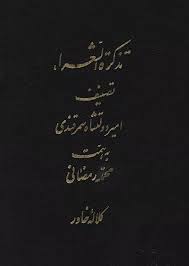 تذکرة الشعراء
تصنیف
امیر دولتشاه سمرقندی
به همت
محمد رمضانی
کلاله خاور